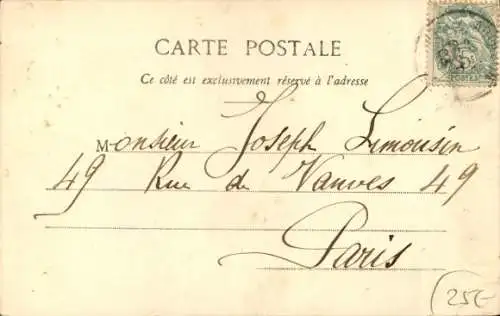 CARTE POSTALE
Ce côté est exclusivement réservé à l'adresse
Monsieur Joseph Limousin
49 Rue de Vanves 49
Paris
25€